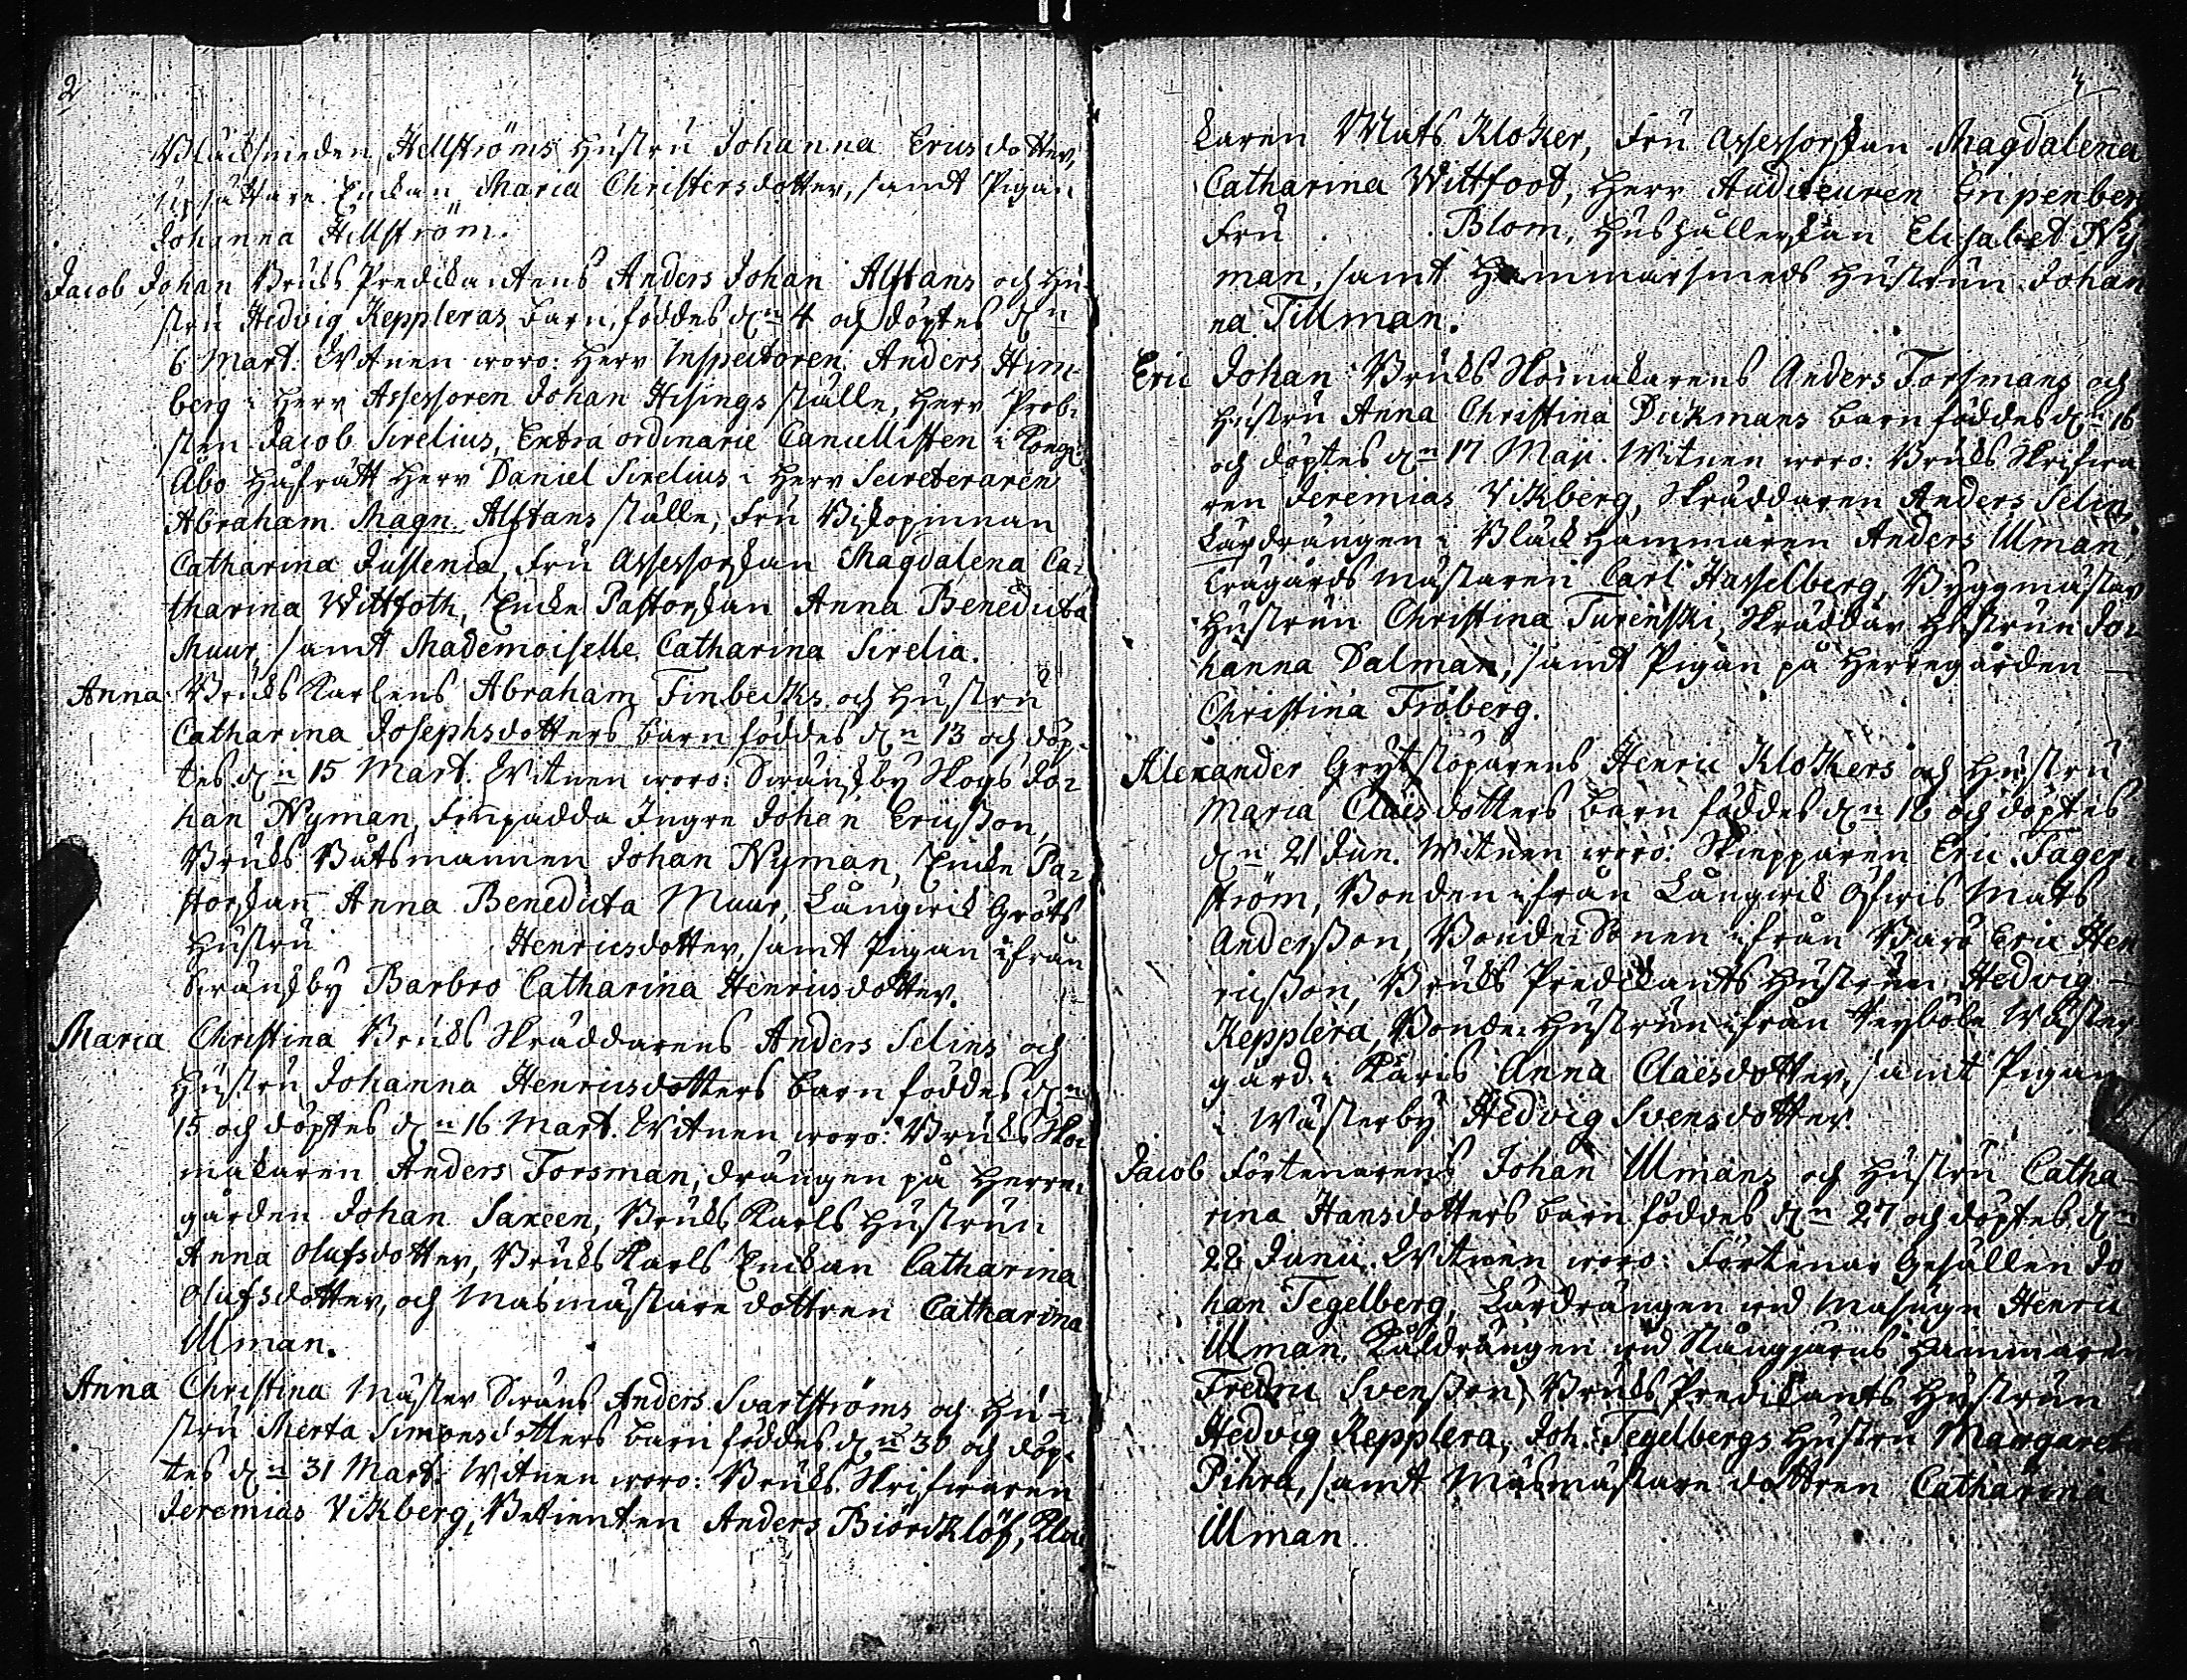 2
Bläcksmeden Hellströms Hustru Johanna Ericsdotter,
Enkan Maria Christersdotter, samt Pigan
Johanna Hellström.
Jacob Johan Bruks Predikantens Anders Johan Alftans och Hu-
stru Hedvig Keppleras barn, föddes dn 4 och döptes dn
6 Mart. Witnen woro: Herr Inspectoren Anders Him-
berg i Herr Assessoren Johan Hisings ställe, Herr Prob-
sten Jacob Sirelius, Extra ordinarie Cancellisten i Kongl.
Åbo Håfrätt Herr Daniel Sirelius i Herr Secreteraren
Abraham Magn. Alftans ställe, Fru Biskopinnan
Catharina Juslenia, Fru Assessorskan Magdalena Ca-
tharina Wittfoth, Encke Pastorskan Anna Benedicta
Muur, samt Mademoiselle Catharina Sirelia.
Anna Bruks Karlens Abraham Finbecks och Hustru
Catharina Josephsdotters barn föddes dn 13 och döp-
tes dn 15 Mart. Witnen woro: Swanskby Skogs Jo-
han Nyman, Ingre Johan Ericsson,
Bruks Båtsmannen Johan Nyman, Encke Pa-
storskan Anna Benedicta Muur, Långwik Gröts
Hustru Henricsdotter, samt Pigan ifrån
Swanskby Barbro Catharina Henricsdotter.
Maria Christina Bruks Skräddarens Anders Selins och
Hustru Johanna Henricsdotters barn föddes dn
15 och döptes dn 16 Mart. Witnen woro: Bruks Sko-
makaren Anders Forsman, drängen på Herre-
gården Johan Saxeen, Bruks Karls Hustrun
Anna Olufsdotter, Bruks Karls Enckan Catharina
Olufsdotter, och Masmästare dottren Catharina
Ulman.
Anna Christina Mäster Swäns Anders Svartströms och Hu-
stru Merta Simonsdotters barn föddes dn 30 och döp-
tes dn 31 Mart. Witnen woro: Bruks Skrifwaren
Jeremias Vikberg, Betienten Anders Biörcklöf, Kloc
3
karen Mats Klocker, Fru Assessorskan Magdalena
Catharina Wittfoot, Herr Auditeuren Gripenberg
Fru Blom, Hushållerskan Elisabet Ny-
man, samt Hammarsmeds Hustrun Johan
na Tillman.
Eric Johan Bruks Skomakarens Anders Forsmans och
Hustru Anna Christina Dickmans barn föddes dn 16
och döptes dn 17 Maji. Witnen woro: Bruks Skrifwa
ren Jeremias Vikberg, Skräddaren Anders Selin,
Lärdrängen i Bläckhammaren Anders Ulman,
Trägårds mästaren Carl Hasselberg, Byggmästar
Hustrun Christina Turenski, Skräddar Hustrun Jo-
hanna Dalman, samt Pigan på Herregården
Christina Fröberg.
Alexander Grytstöparens Henric Klockers och Hustru
Maria Claesdotters barn föddes dn 18 och döptes
dn 21 Jun. Witnen woro: Skepparen Eric Fager-
ström, Bonden ifrån Långwik Öfwis Mats
Andersson, Bonde-Sonen ifrån Barö Eric Hen
ricsson, Bruks Predikants Hustrun Hedvig
Kepplera, Bonde-Hustrun ifrån Wäster
gård i Karis Anna Claesdotter, samt Pigan
i Wästerby Hedvig Svensdotter.
Jacob Förtenarens Johan Ulmans och Hustru Catha-
rina Hansdotters barn föddes dn 27 och döptes dn
28 Junii. Witnen woro: Förtenar Gesällen Jo
han Tegelberg, Lärdrängen wid Masugn Henric
Ulman, Kåldrängen wid Stångjärns Hammaren
Fredric Svensson, Bruks Predikants Hustrun
Hedvig Kepplera, Joh. Tegelbergs Hustru Margareta
Pihra, samt Masmästare dottren Catharina
Ulman.